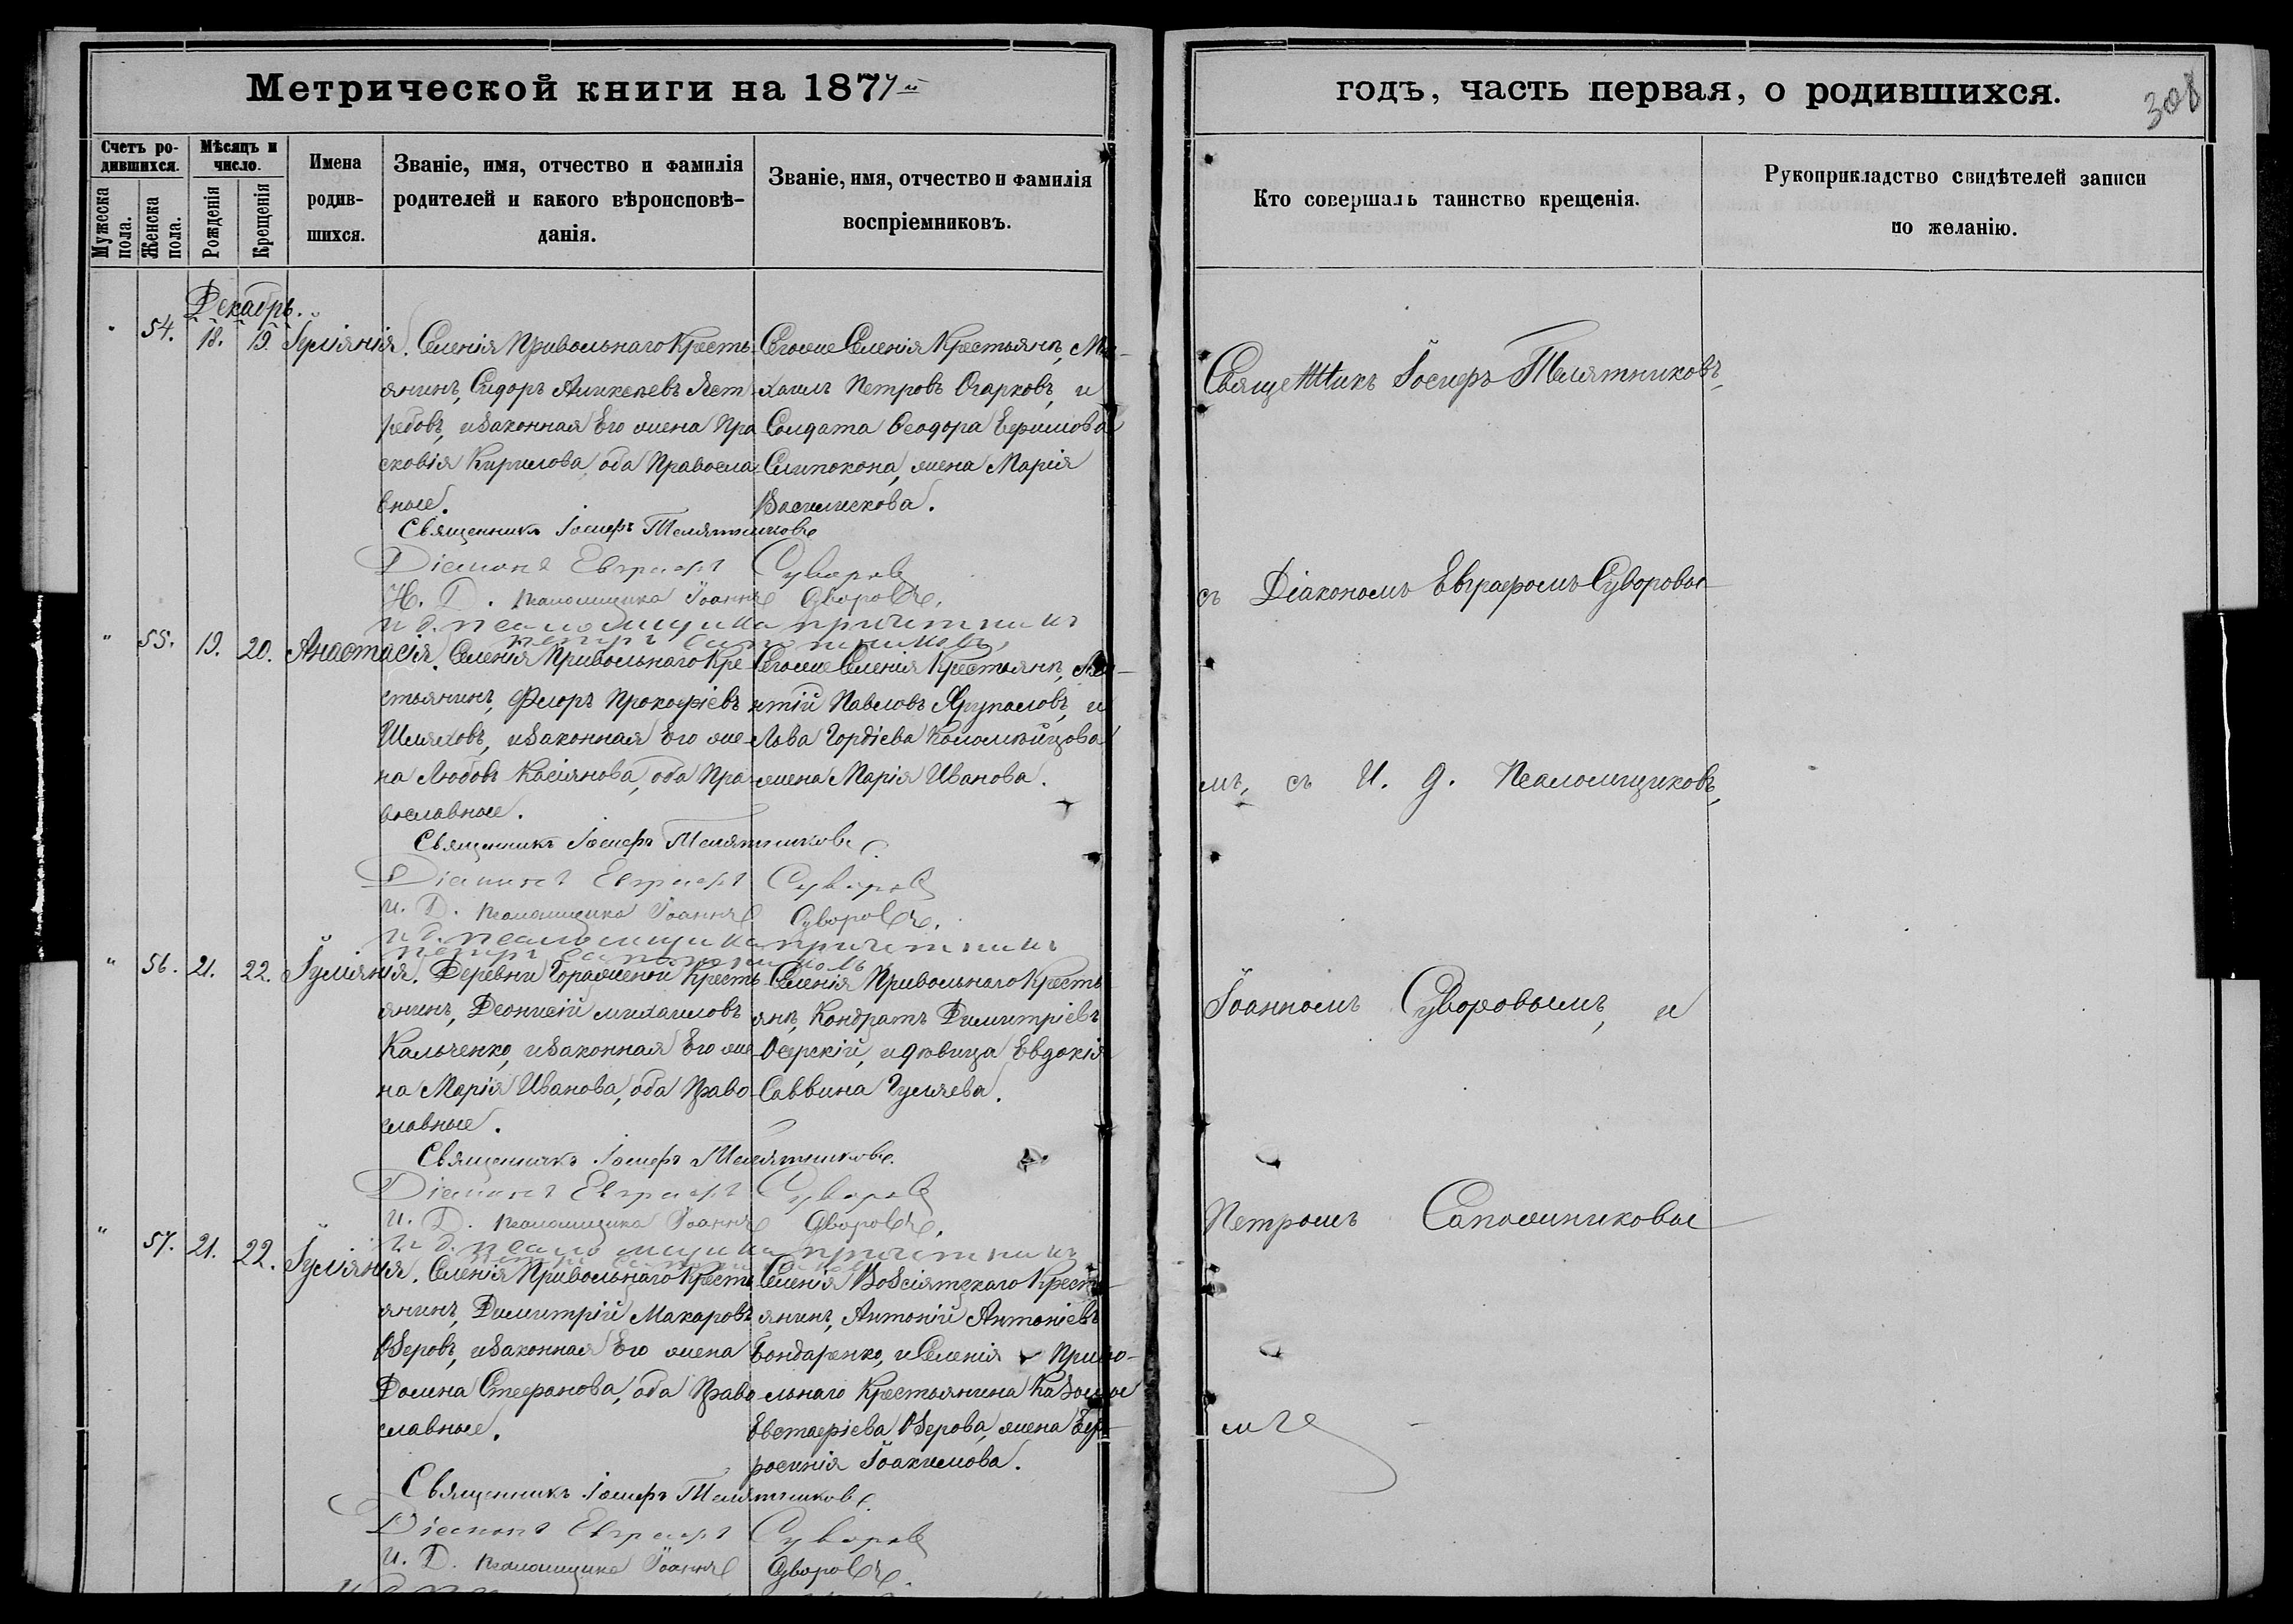 Метрической книги на 1877й
годъ, часть первая, о родившихся.
308
Счетъ ро-
дившихся.
Мужеска
пола.
Женска
пола.
Мѣсяцъ и
число.
Рожденія
Крещенія
Имена
родив-
шихся.
Званіе, имя, отчество и фамилія
родителей и какого вѣроисповѣ-
данія.
Званіе, имя, отчество и фамилія
воспріемниковъ.
Кто совершалъ таинство крещенія.
Рукоприкладство свидѣтелей записи
по желанію.
Декабрь.
" 54. 18. 19. Іуліянія.
Селенія Привольнаго Кресть-
янинъ, Сидоръ
редовъ, и законная Его жена Пра
сковія Кирилова, оба Правосла-
вные.
Сегоже Селенія Крестьянъ, Ми-
хаилъ Петровъ Огарковъ, и
Солдата Ѳеодора Ефимова
жена Марія
Василискова.
Священникъ Іосифъ Телятниковъ
Діаконъ Евграфъ Суворовъ
И. Д. псаломщика Іоаннъ Суворовъ.
и д. псаломщика причетникъ
Петръ Сапожниковъ
" 55. 19. 20. Анастасія.
Селенія Привольнаго Кре-
стьянинъ, Флоръ Прокофіевъ
Шляховъ, и законная Его же-
на Любовь Касіянова, оба Пра-
вославные.
Сегоже Селенія Крестьянъ, Ле-
нтій Павловъ и
Льва Гордіева Коломыйцова
жена Марія Иванова.
Священникъ Іосифъ Телятниковъ
Діаконъ Евграфъ Суворовъ
и. Д. псаломщика Іоаннъ Суворовъ.
и д. псаломщика причетникъ
Петръ Сапожниковъ
" 56. 21. 22. Іуліянія.
Деревни Горожаной Кресть-
янинъ, Деонисій Михаиловъ
Кальченко, и законная Его же-
на Марія Иванова, оба Право-
славные.
Селенія Привольнаго Кресть
янъ, Кондратъ Димитріевъ
Осерскій, и дѣвица Евдокія
Саввина Гуляева.
Священникъ Іосифъ Телятниковъ.
Діаконъ Евграфъ Суворовъ
и. Д. псаломщика Іоаннъ Суворовъ.
и д. псаломщика причетникъ
" 57. 21. 22. Іуліянія.
Селенія Привольнаго Кресть
янинъ, Димитрій Макаровъ
Озеровъ, и законная Его жена
Домна Стефанова, оба Право
славные.
Селенія Возсіятскаго Кресть-
янинъ, Антоній Антоніевъ
Бондаренко, и Селенія Приво-
льнаго Крестьянина Козьмы
Евстафіева Озерова, жена Еф-
росинія Іоакимова.
Священникъ Іосифъ Телятниковъ.
Діаконъ Евграфъ Суворовъ
и. Д. псаломщика Іоаннъ Суворовъ.
Священникъ Іосифъ Телятниковъ,
съ Діакономъ Евграфомъ Суворовы-
мъ, съ И. д. Псаломщиковъ,
Іоанномъ Суворовымъ, и
Петромъ Сапожниковы-
мъ